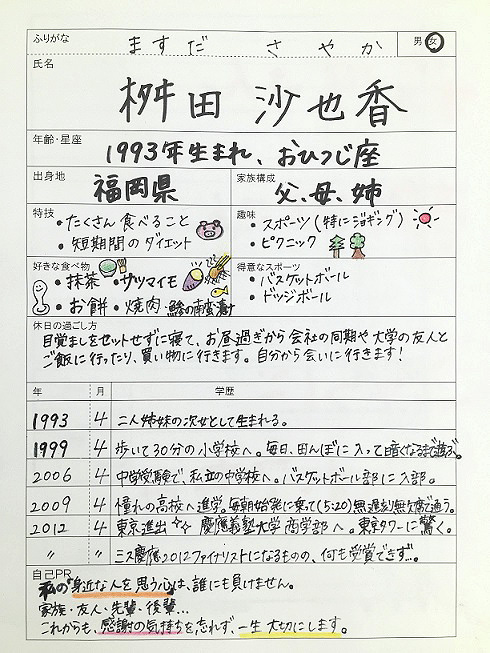 ふりがな ますだ さやか 男 女
氏名
桝田 沙也香
年齢・星座
1993年生まれ、おひつじ座
出身地 福岡県
家族構成 父、母、姉
特技
・たくさん食べること
・短期間のダイエット
趣味
・スポーツ(特にジョギング)
・ピクニック
好きな食べ物
・抹茶 ・サツマイモ
・お餅 ・焼肉 ・鯵の南蛮漬け
得意なスポーツ
・バスケットボール
・ドッジボール
休日の過ごし方
目覚ましをセットせずに寝て、お昼過ぎから会社の同期や大学の友人と
ご飯に行ったり、買い物に行きます。自分から会いに行きます!
年 月 学歴
1993 4 二人姉妹の次女として生まれる。
1999 4 歩いて30分の小学校へ。毎日、田んぼに入って暗くなるまで遊ぶ。
2006 4 中学受験で、私立の中学校へ。バスケットボール部に入部。
2009 4 憧れの高校へ進学。毎朝始発に乗って(5:20)無遅刻無欠席で通う。
2012 4 東京進出☆☆ 慶應義塾大学 商学部へ。東京タワーに驚く。
〃 〃 ミス慶應2012ファイナリストになるものの、何も受賞できず…。
自己PR
私の「身近な人を思う心」は、誰にも負けません。
家族・友人・先輩・後輩…
これからも、感謝の気持ちを忘れず、一生大切にします。